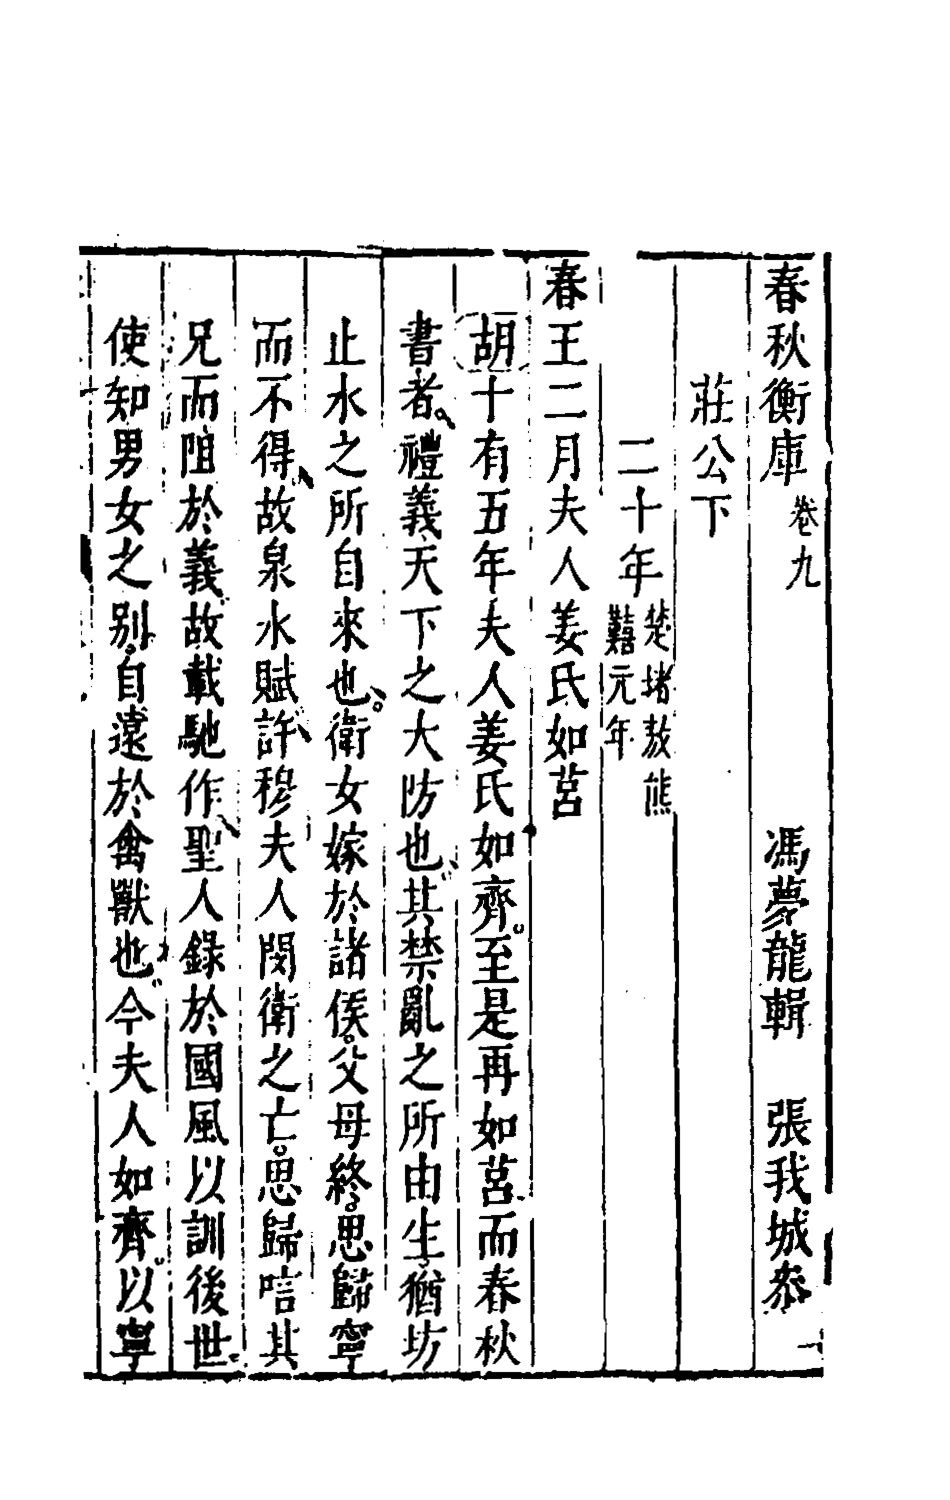 春秋衡庫 卷九 馮夢龍輯 張我城叅
莊公下
二十年 楚堵敖熊囏元年
春王二月夫人姜氏如莒
胡十有五年夫人姜氏如齊至是再如莒而春秋
書者禮義天下之大防也其禁亂之所由生猶坊
止水之所自來也衛女嫁於諸侯父母終思歸寧
而不得故泉水賦許穆夫人閔衛之亡思歸唁其
兄而阻於義故載馳作聖人錄於國風以訓後世
使知男女之别自遠於禽獸也今夫人如齊以寧